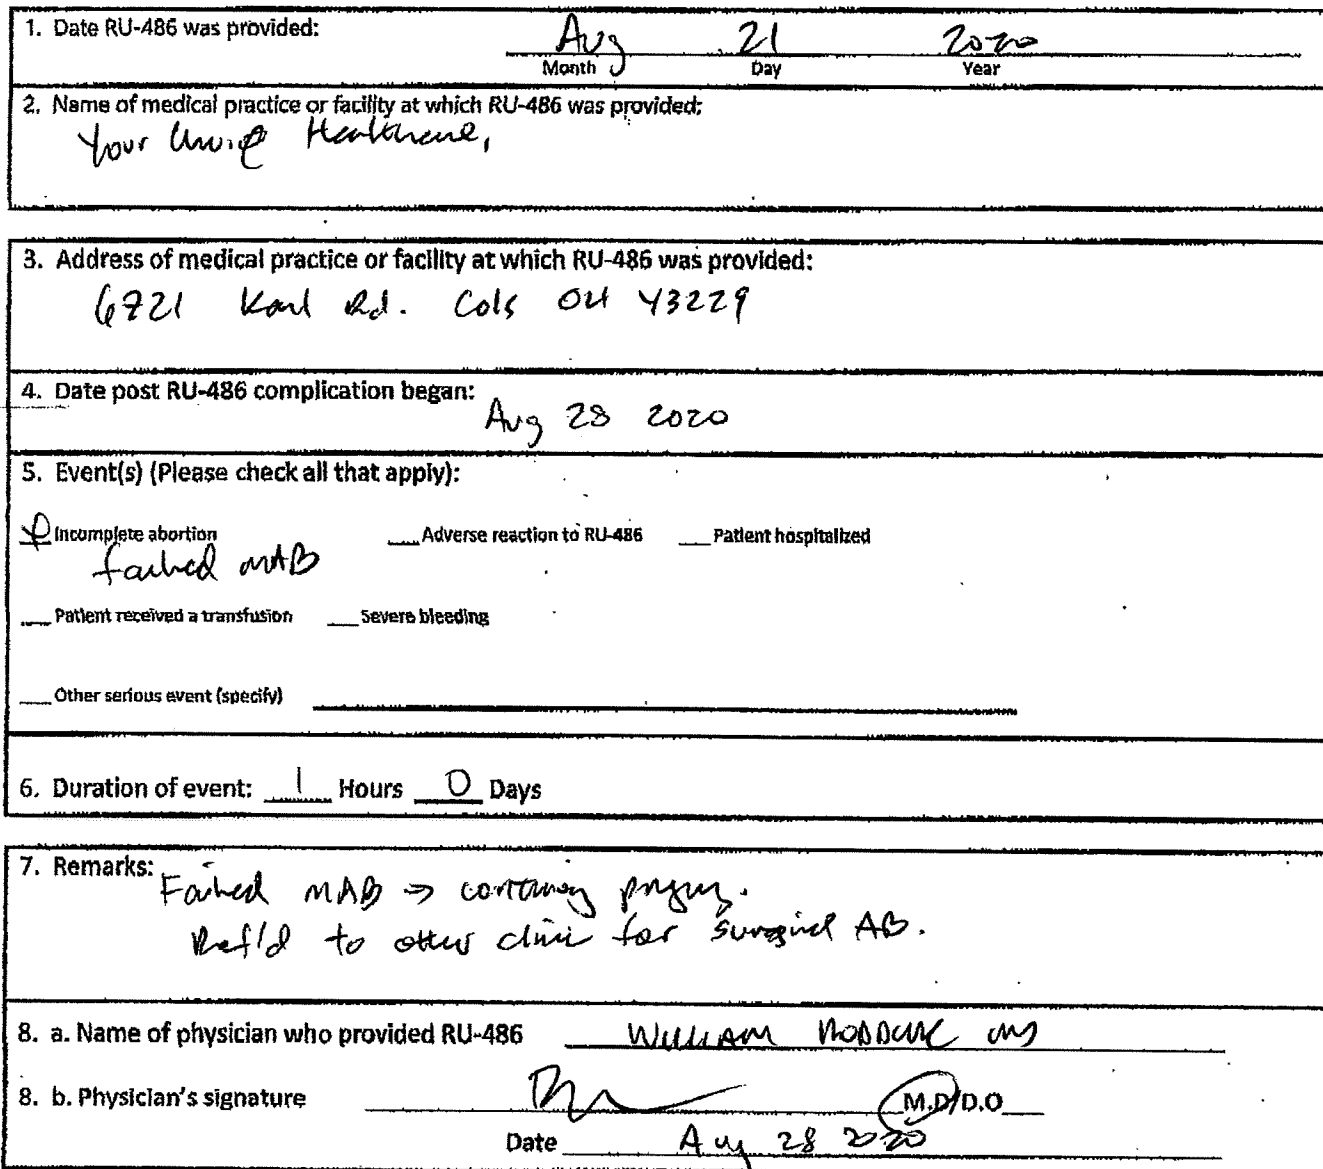 1. Date RU-486 was provided: Aug 21 2020
Month Day Year
2. Name of medical practice or facility at which RU-486 was provided:
Your Choice Healthcare,
3. Address of medical practice or facility at which RU-486 was provided:
6721 Karl Rd. Cols OH 43229
4. Date post RU-486 complication began:
Aug 28 2020
5. Event(s) (Please check all that apply):
Incomplete abortion ___ Adverse reaction to RU-486 ___ Patient hospitalized
failed MAB
___ Patient received a transfusion ___ Severe bleeding
___ Other serious event (specify)
6. Duration of event: 1 Hours 0 Days
7. Remarks:
Failed MAB => continuing pregnancy.
Ref'd to other clinic for surgical AB.
8. a. Name of physician who provided RU-486 William MD
8. b. Physician's signature M.D/D.O
Date Aug 28 2020